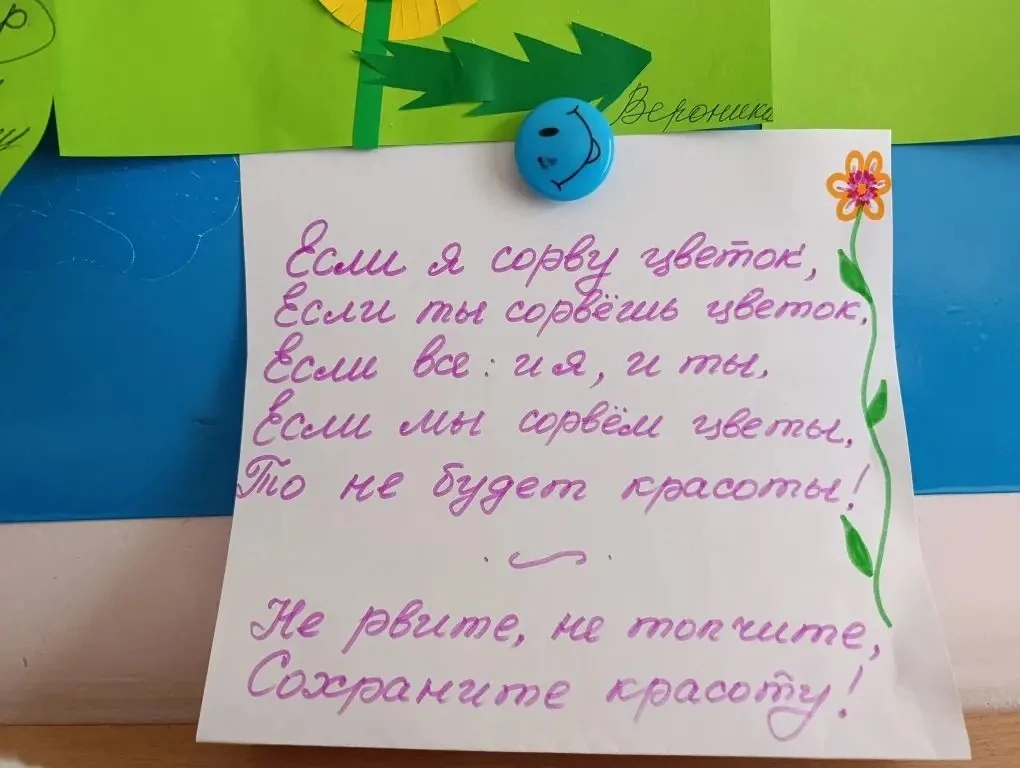 Вероника
Если я сорву цветок,
Если ты сорвёшь цветок,
Если все: и я, и ты,
Если мы сорвём цветы,
То не будет красоты!
Не рвите, не топчите,
Сохраните красоту!